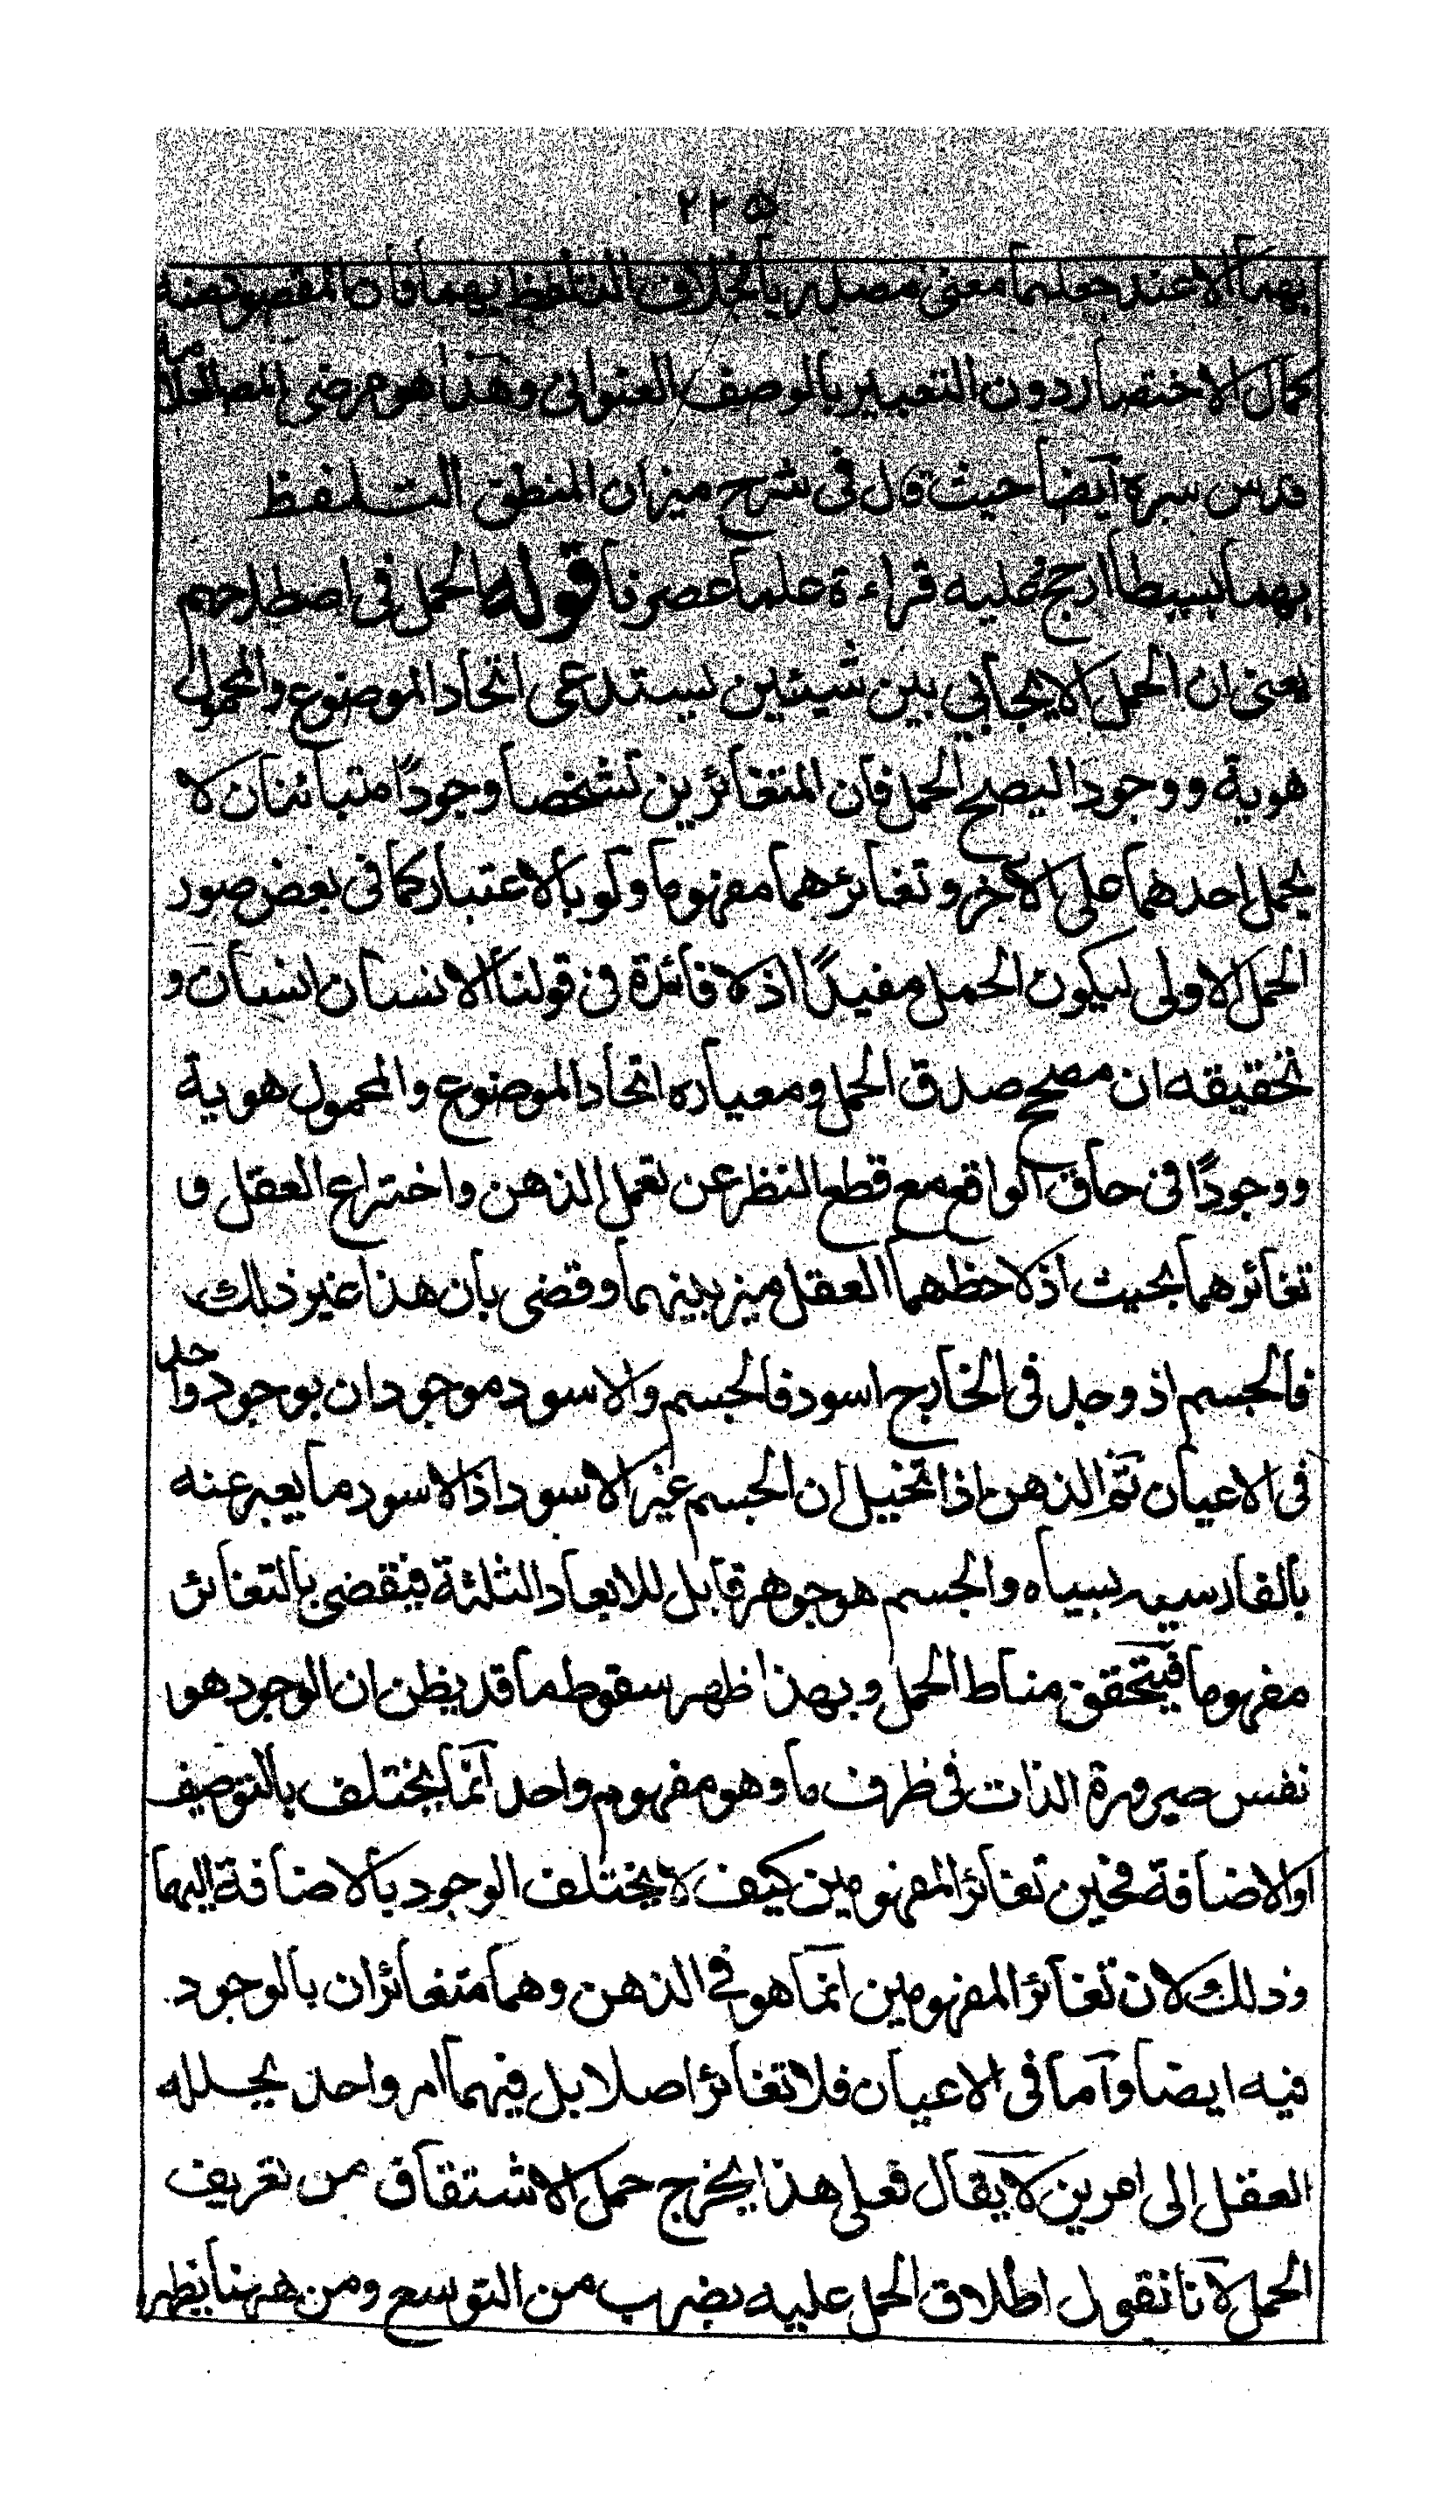 ٢٢٥
بهما الا عند جعلهما معنى مصدريا بخلاف التلفظ بهما فان المقصود منه
كمال الاختصار دون التعبير بالوصف العنوانى وهذا هو مرضى المصنف العلامة
قدس سره ايضا حيث قال فى شرح ميزان المنطق التلفظ
بهما بسيطا ارجح فعليه قراءة علماء عصرنا قوله الحمل فى اصطلاحهم
يعنى ان الحمل الايجابي بين شيئين يستدعى اتحاد الموضوع والمحمول
هوية ووجودا ليصلح الحمل فان المتغائرين تشخصا وجودًا متبائنان لا
يحمل احدهما على الآخر وتغائرهما مفهوما ولو بالاعتبار كما فى بعض صور
الحمل الاولى ليكون الحمل مفيدًا اذ لا فائدة فى قولنا الانسان انسان و
تحقيقه ان مصحح صدق الحمل ومعياره اتحاد الموضوع والمحمول هوية
ووجودًا فى حاق الواقع مع قطع النظر عن تعمل الذهن واختراع العقل و
تغائرهما بحيث اذ لاحظهما العقل ميز بينهما وقضى بان هذا غير ذلك
فالجسم اذ وجد فى الخارج اسود فالجسم والاسود موجودان بوجود واحد
فى الاعيان ثم الذهن اذا تخيل ان الجسم غير الاسود اذ الاسود ما يعبر عنه
بالفارسيه بسياه والجسم هو جوهر قابل للابعاد الثلثة فيقضى بالتغائر
مفهوما فيتحقق مناط الحمل وبهذا ظهر سقوط ما قد يظن ان الوجود هو
نفس صيرورة الذات فى ظرف ما وهو مفهوم واحد انما يختلف بالتوصيف
او الاضافة فحين تغائر المفهومين كيف لا يختلف الوجود بالاضافة اليهما
وذلك لان تغائر المفهومين انما هو فى الذهن وهما متغائران بالوجود
فيه ايضا واما فى الاعيان فلا تغائر اصلا بل فيهما امر واحد يحلله
العقل الى امرين لا يقال فعلى هذا يخرج حمل الاشتقاق من تعريف
الحمل لانا نقول اطلاق الحمل عليه بضرب من التوسع ومن ههنا يظهر